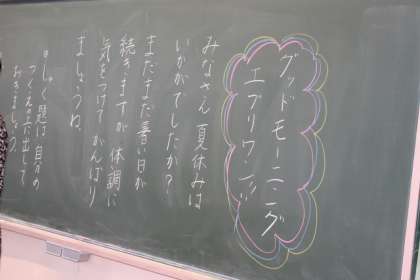 グッド モーニング
エブリワン!!
みなさん 夏休みは
いかがでしたか?
まだまだ暑い日が
続きますが 体調に
気をつけて がんばり
ましょうね。
・しゅく題は自分の
つくえに出して
おきましょう